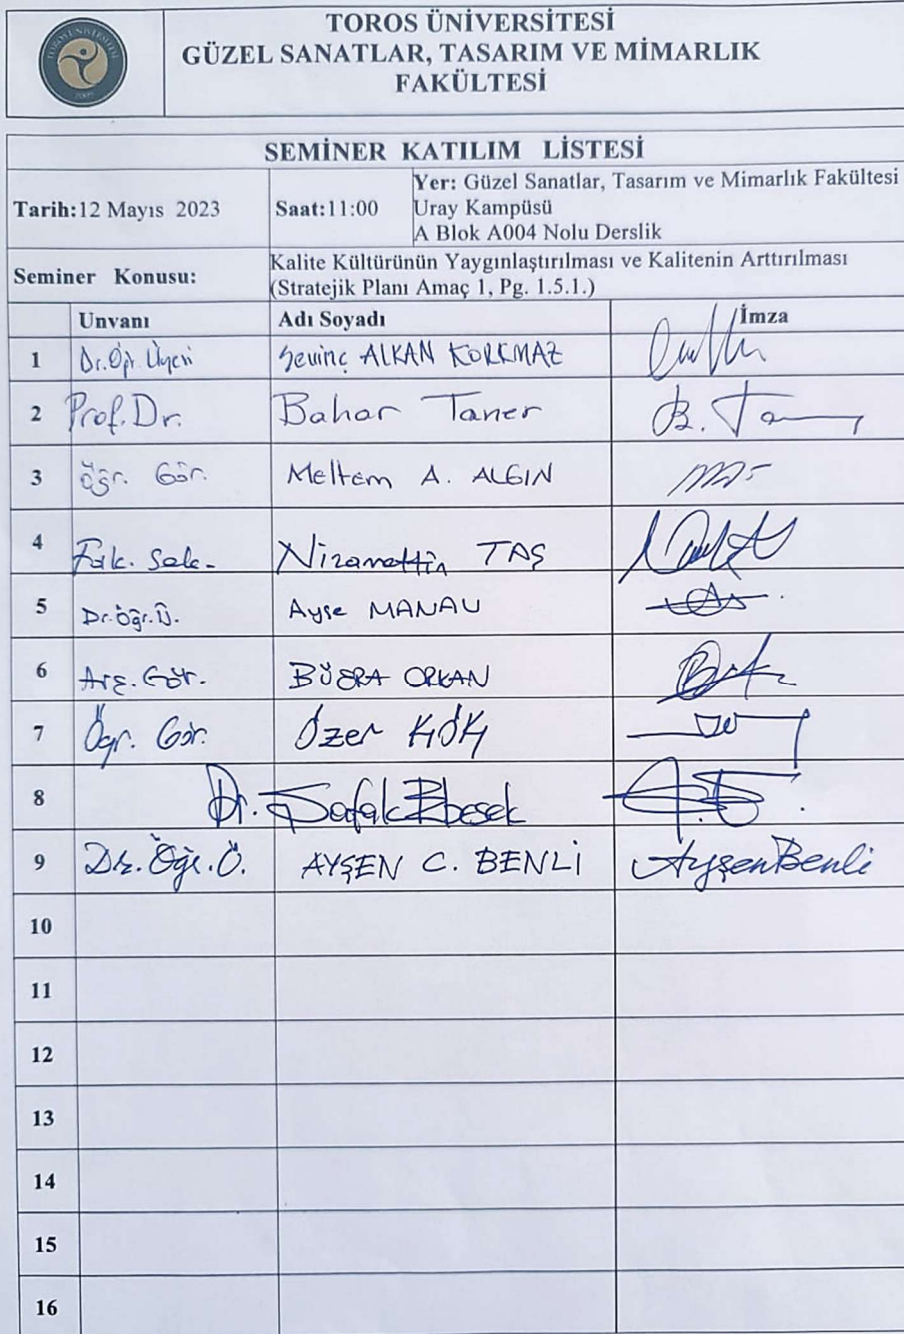 TOROS ÜNİVERSİTESİ
GÜZEL SANATLAR, TASARIM VE MİMARLIK
FAKÜLTESİ
SEMİNER KATILIM LİSTESİ
Tarih:12 Mayıs 2023 Saat:11:00 Yer: Güzel Sanatlar, Tasarım ve Mimarlık Fakültesi
Uray Kampüsü
A Blok A004 Nolu Derslik
Seminer Konusu: Kalite Kültürünün Yaygınlaştırılması ve Kalitenin Arttırılması
(Stratejik Planı Amaç 1, Pg. 1.5.1.)
Unvanı Adı Soyadı İmza
1 Dr.Öğr. Üyesi Sevinç ALKAN KORKMAZ
2 Prof. Dr. Bahar Taner B. Ta
3 Öğr. Gör. Meltem A. ALGIN
4 Fak. Sek. Nizamettin TAŞ
5 Dr. Öğr. Ü. Ayşe MANAV
6 Arş. Gör. BÜŞRA ORKAN
7 Ögr. Gör. Özer KÖK
8 Dr. Şafak Ebesek
9 Dr. Öğr. Ü. AYŞEN C. BENLİ Ayşen Benli
10
11
12
13
14
15
16